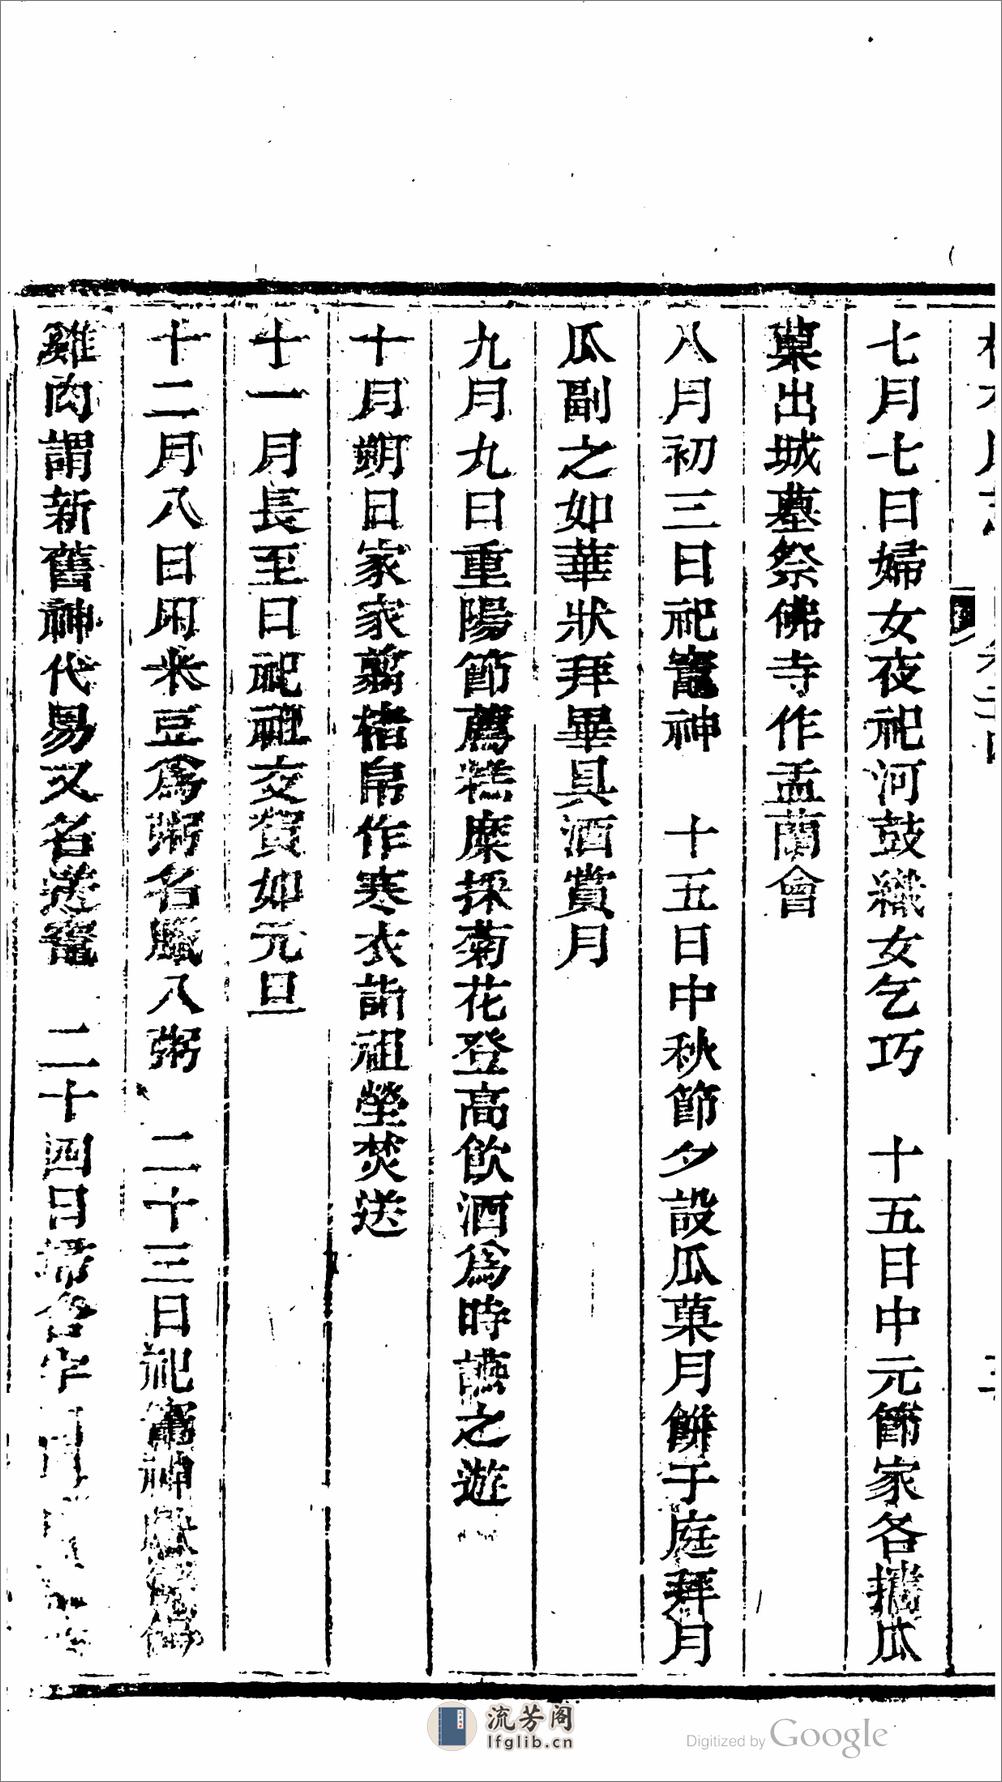 七月七日婦女夜祀河鼓織女乞巧　十五日中元節家各攜瓜
菓出城墓祭佛寺作盂蘭會
八月初三日祀竈神　十五日中秋節夕設瓜菓月餅于庭拜月
瓜副之如華狀拜畢具酒賞月
九月九日重陽節薦糕糜採菊花登高飲酒爲時讌之遊
十月朔日家家剪楮帛作寒衣詣祖塋焚送
十一月長至日祀祖交賀如元旦
十二月八日用米豆爲粥名臘八粥　二十三日祀竈神
雞肉謂新舊神代易又名送竈　二十四日掃舍宇
流芳阁
lfglib.cn
Digitized by Google